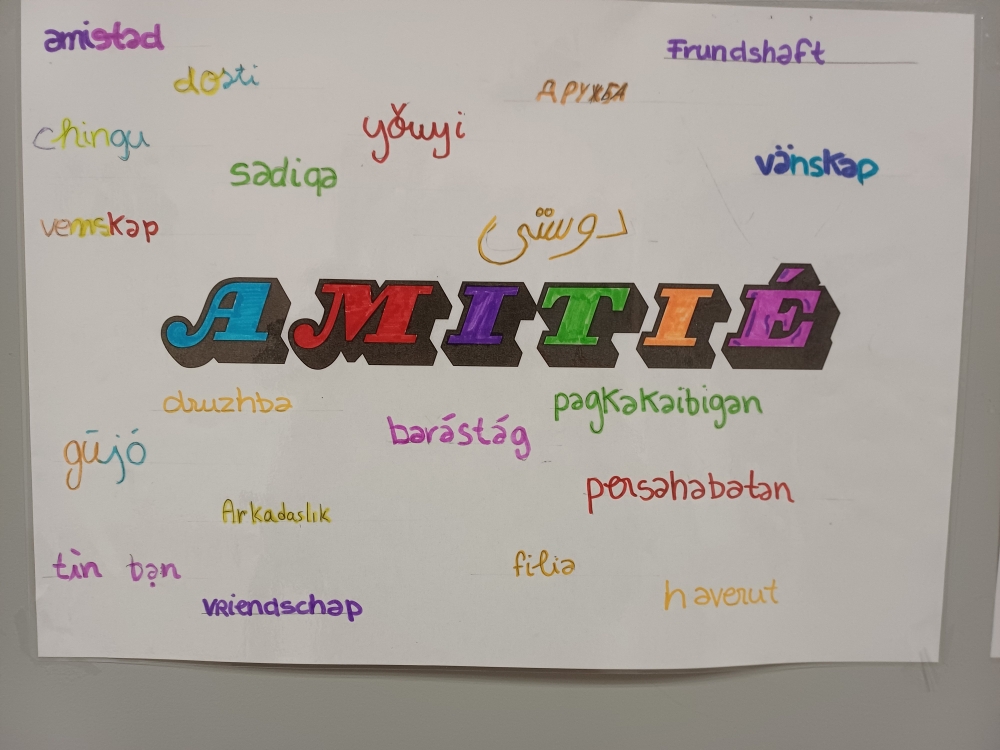 amistad
Frundshaft
dosti
дружба
chingu
yǒuyi
sadiqa
vänskap
vemskap
دوستی
AMITIÉ
druzhba
pagkakaibigan
barástág
gūjó
persahabatan
Arkadaşlık
tìn bạn
filia
haverut
vriendschap